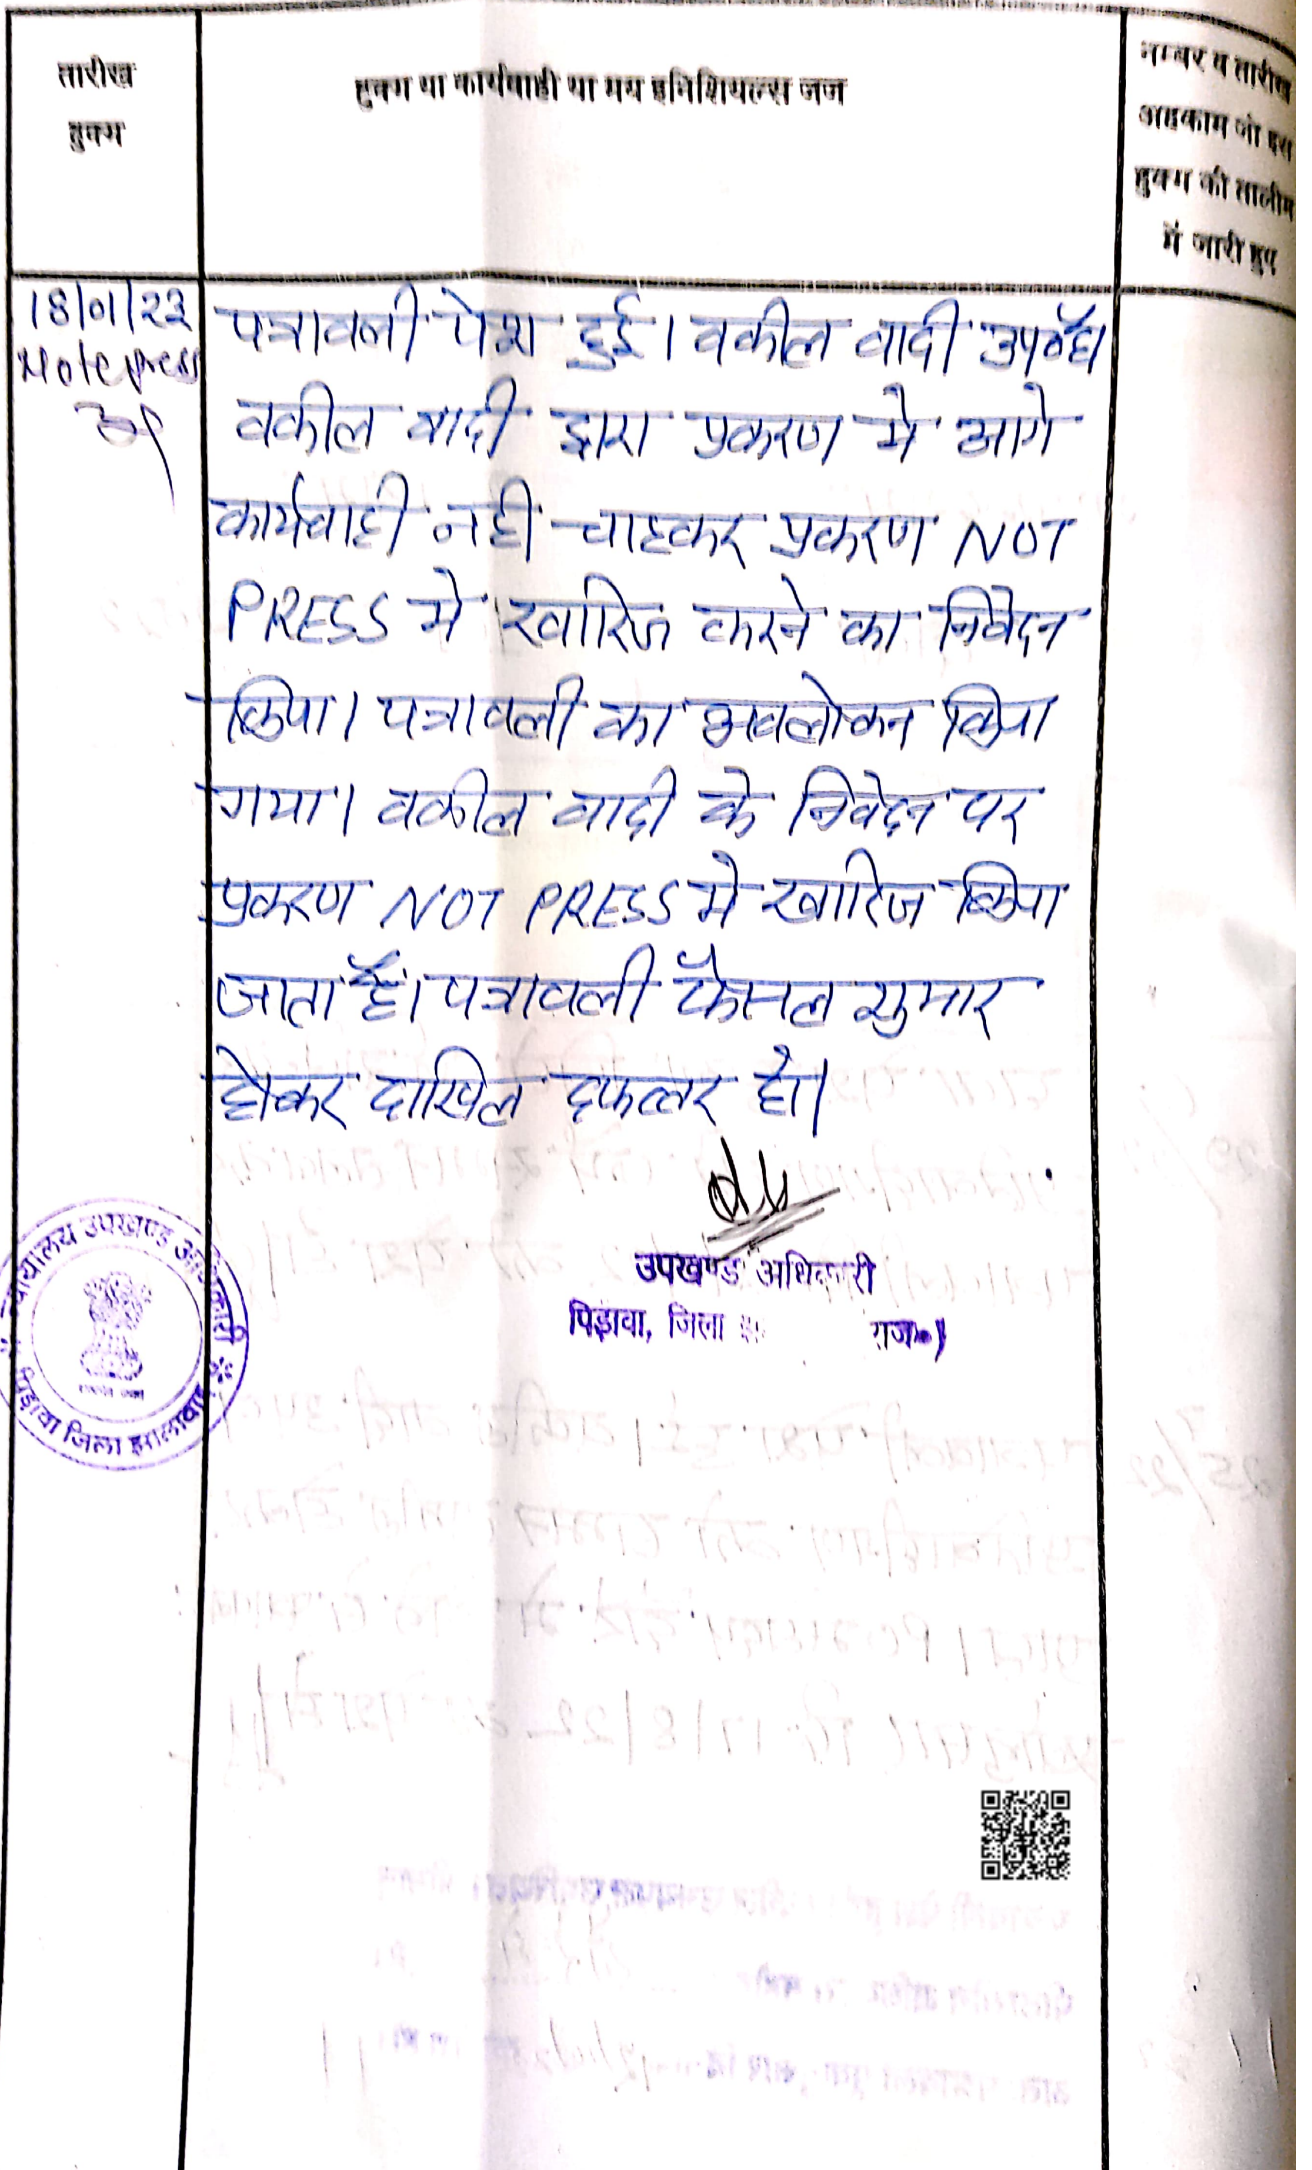 तारीख
हुक्म
हुक्म या कार्यवाही या मय इनिशियल्स जज
नम्बर व तारीख
अहकाम जो इस
हुक्म की तालीम
में जारी हुए
18/01/23
Note press
पत्रावली पेश हुई। वकील वादी उप०है।
वकील वादी द्वारा प्रकरण मे आगे
कार्यवाही नही चाहकर प्रकरण NOT
PRESS मे खारिज करने का निवेदन
किया। पत्रावली का अवलोकन किया
गया। वकील वादी के निवेदन पर
प्रकरण NOT PRESS मे खारिज किया
जाता है। पत्रावली फैसल शुमार
होकर दाखिल दफ्तर हो।
उपखण्ड अधिकारी
पिड़ावा, जिला राज०)
न्यायालय उपखण्ड अधिकारी
पिड़ावा जिला झालावाड़